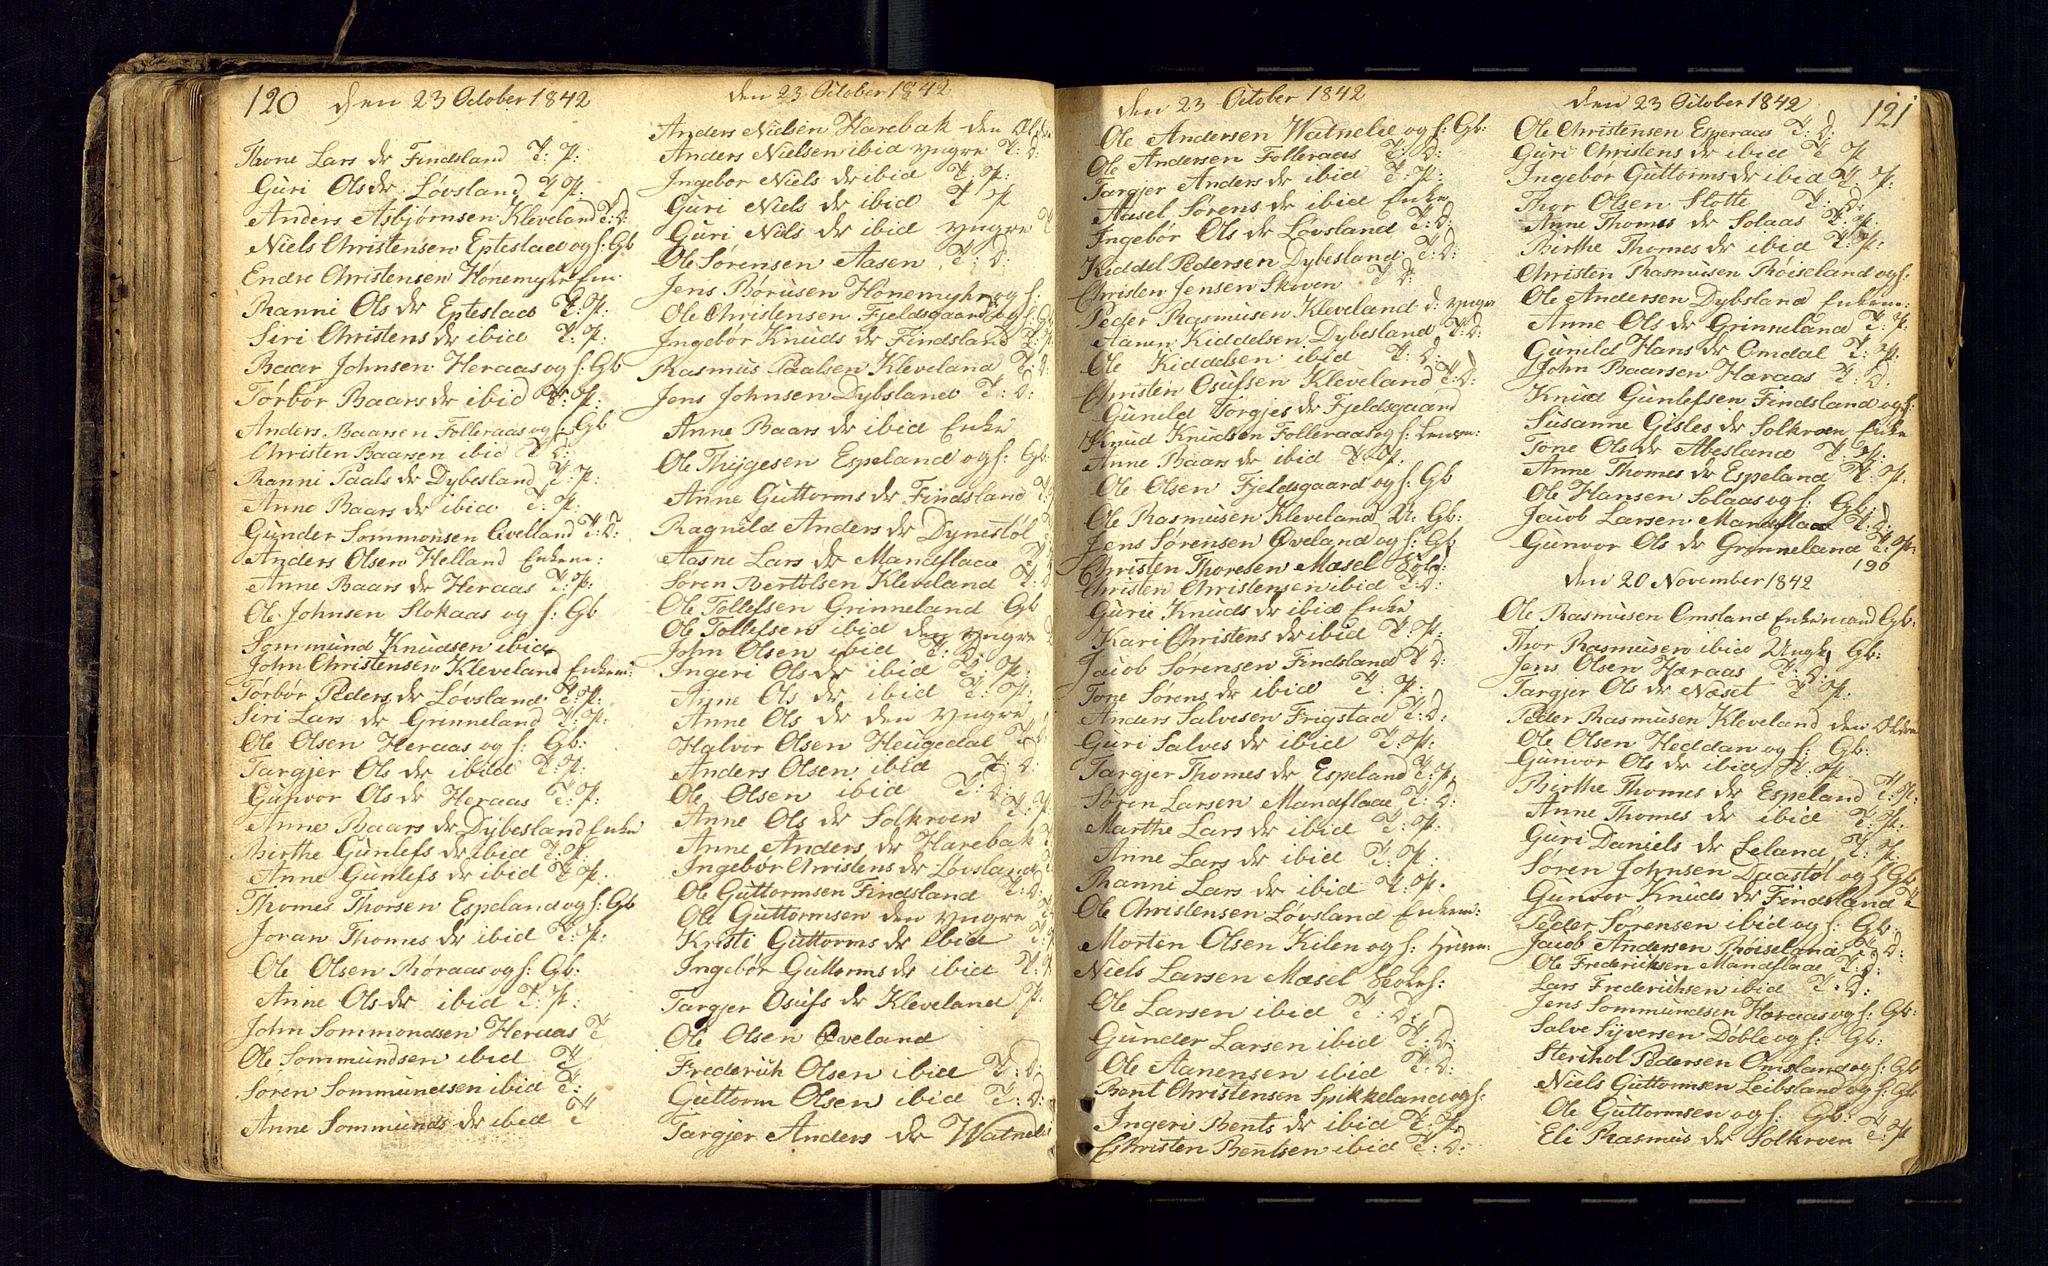 120 den 23 October 1842
Thone Lars dr Findsland T: P:
Guri Ols dr Løvsland T: P:
Anders Asbjørnsen Kleveland T: D:
Niels Christensen Eptestad og f: Gb
Endre Christensen Hønemyhr Em:
Ranni Ols dr Eptestad T: P:
Siri Christens dr ibid T: P:
Baar Johnsen Heraas og f: Gb
Tørbør Baars dr ibid T: P:
Anders Baarsen Folleraas og f: Gb
Christen Baarsen ibid T: D:
Ranni Paals dr Dybesland T: P:
Anne Baars dr ibid T: P:
Gunder Sommonsen Qvelland T: D:
Anders Olsen Helland Enkem:
Anne Baars dr Heraas T: P:
Ole Johnsen Stokaas og f: Gb
Sommund Knudsen ibid
John Christensen Kleveland Enkem:
Tørbør Peders dr Løvsland T: P:
Siri Lars dr Grinneland T: P:
Ole Olsen Heraas og f: Gb:
Targjer Ols dr ibid T: P:
Gunvor Ols dr Heraas T: P:
Anne Baars dr Dybesland Enke
Birthe Gunlefs dr ibid T: P:
Anne Gunlefs dr ibid T: P:
Thomes Thorsen Espeland og f: Gb
Joran Thomes dr ibid T: P:
Ole Olsen Røraas og f: Gb:
Anne Ols dr ibid T: P:
John Sommondsen Heraas T
Ole Sommundsen ibid T
Søren Sommundsen ibid T:
Anne Sommunds dr ibid T
den 23 October 1842
Anders Nielsen Harebak den Ældre
Anders Nielsen ibid yngre T: D:
Ingebør Niels dr ibid T: P:
Guri Niels dr ibid T P
Guri Nils dr ibid yngre T
Ole Sørensen Aasen T: D:
Jens Børusen Hønemyhr og f:
Ole Christensen Fjeldsgaard og f: Gb
Ingebør Knuds dr Findsland T: P:
Rasmus Paalsen Kleveland T: D:
Jens Johnsen Dybsland T: D:
Anne Baars dr ibid Enke
Ole Thygesen Espeland og f: Gb:
Anne Guttorms dr Findsland T:
Ragnild Anders dr Dynestøl
Aasne Lars dr Mandflaae T
Søren Bertelsen Kleveland T:
Ole Tollefsen Grinneland Gb
Ole Tollefsen ibid den yngre
John Olsen ibid T: D:
Ingeri Ols dr ibid T: P:
Anne Ols dr ibid T: P:
Anne Ols dr den yngre
Halvor Olsen Heugedal T: D:
Anders Olsen ibid T: D:
Ole Olsen ibid T: D:
Anne Ols dr Solkroen T: P:
Anne Anders dr Harebak T
Ingebør Christens dr Løvsland T:
Ole Guttormsen Findsland T: D:
Ole Guttormsen den yngre T:
Kristi Guttorms dr ibid T:
Ingebør Guttorms dr ibid T:
Targjer Osufs dr Kleveland P:
Ole Olsen Øveland
Frederich Olsen ibid T: D:
Guttorm Olsen ibid T: D:
Targjer Anders dr Watneli
den 23 October 1842
Ole Andersen Watnelie og f: Gb:
Ole Andersen Folleraas T: D:
Targjer Anders dr ibid T: P:
Aasel Sørens dr ibid Enke
Ingebør Ols dr Løvsland T: D:
Kiddel Pedersen Dybesland T: D:
Christen Jensen Skoven T: D:
Peder Rasmusen Kleveland d: yngre
Aanen Kiddelsen Dybesland T: D:
Ole Kiddelsen ibid T: D:
Christen Osufsen Kleveland T: D:
Gunild Torgjes dr Fjeldsgaard
Knud Knudsen Folleraas og f:
Anne Baars dr ibid T: P:
Ole Olsen Fjeldsgaard og f: Gb
Ole Rasmusen Kleveland U: Gb:
Jens Sørensen Øveland og f: Gb
Christen Thoresen Mæsel
Christen Christensen ibid T: D:
Gurie Knuds dr ibid Enke
Kari Christens dr ibid T: P:
Jacob Sørensen Findsland T: D:
Tone Sørens dr ibid T: P:
Anders Salvesen Frigstad T: D:
Guri Salves dr ibid T: P:
Targjer Thomes dr Espeland T: P:
Søren Larsen Mandflaae T: D:
Marthe Lars dr ibid T: P:
Anne Lars dr ibid T: P:
Ranni Lars dr ibid T: P.
Ole Christensen Løvsland Enkem:
Morten Olsen Kilen og f:
Niels Larsen Mæsel Skoleh:
Ole Larsen ibid T: D:
Gunder Larsen ibid T: D:
Ole Aanensen ibid T: D:
Bent Christensen Spikkeland og f:
Ingeri Bents dr ibid T: P:
Christen Bentsen ibid T: D:
den 23 October 1842 121
Ole Christensen Esperaas T: D:
Guri Christens dr ibid T P
Ingebor Guttorms dr ibid T: P:
Thor Olsen Slotte T: D:
Anne Thomes dr Solaas T: P:
Birthe Thomes dr ibid T: P:
Christen Rasmusen Røiseland og f:
Ole Andersen Dybsland Enkem:
Anne Ols dr Grinneland T: P:
Gunild Hans dr Omdal T: P:
John Baarsen Haraas T: D:
Knud Gunlefsen Findsland og f:
Susanne Gisles dr Solkroen Enke
Tone Ols dr Abesland T: P:
Anne Thomes dr Espeland T: P:
Ole Hansen Solaas og f: Gb:
Jacob Larsen Mandflaae T: D:
Gunvor Ols dr Grinneland T: P:
190
den 20 November 1842
Ole Rasmusen Omsland Enkemand Gb:
Thor Rasmusen ibid Ungk, Gb:
Jens Olsen Haraas T: D:
Targjer Ols dr Næset T: P:
Peder Rasmusen Kleveland den Ældre
Ole Olsen Heddan og f: Gb:
Gunvor Ols dr ibid T: P:
Birthe Thomes dr Espeland T: P:
Anne Thomes dr ibid T: P:
Guri Daniels dr Leland T: P:
Søren Johnsen Daastøl og f: Gb
Gunvor Knuds dr Findsland T
Peder Sørensen ibid og f: Gb
Jacob Andersen Røiseland T: D:
Ole Frederichsen Mandflaae T: D:
Lars Frederichsen ibid T: D:
Jens Sommundsen Haraas og f: Gb:
Salve Syversen Døble og f: Gb:
Sterchol Pedersen Omsland og f: Gb
Niels Guttormsen Leibsland og f: Gb
Ole Guttormsen og f: Gb:
Eli Rasmus dr Solkroen T: P